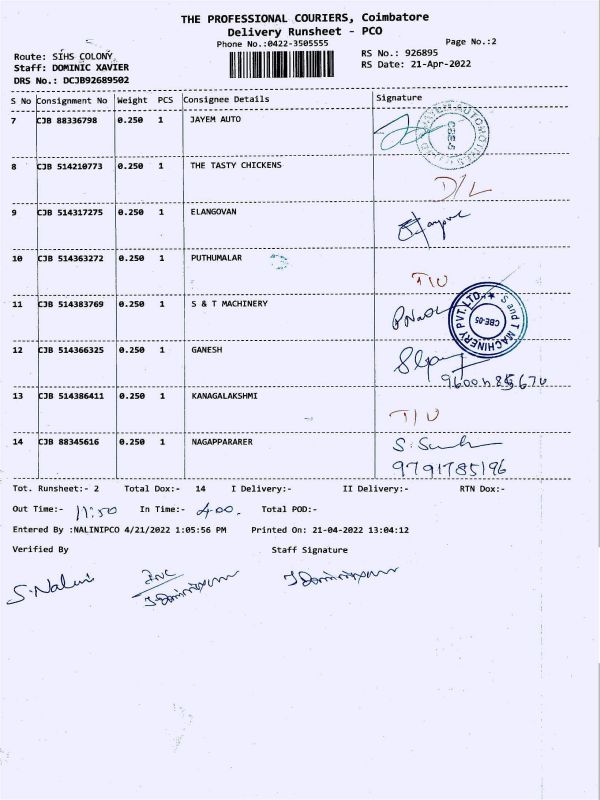 THE PROFESSIONAL COURIERS, Coimbatore
Delivery Runsheet - PCO
Phone No.:0422-3505555
Page No.:2
Route: SIHS COLONY
RS No.: 926895
Staff: DOMINIC XAVIER
RS Date: 21-Apr-2022
DRS No.: DCJB92689502
S No Consignment No Weight PCS Consignee Details Signature
7 CJB 88336798 0.250 1 JAYEM AUTO
8 CJB 514210773 0.250 1 THE TASTY CHICKENS D/L
9 CJB 514317275 0.250 1 ELANGOVAN
10 CJB 514363272 0.250 1 PUTHUMALAR T/U
11 CJB 514383769 0.250 1 S & T MACHINERY
S and T MACHINERY PVT. LTD. CBE-05
12 CJB 514366325 0.250 1 GANESH
13 CJB 514386411 0.250 1 KANAGALAKSHMI T/U
14 CJB 88345616 0.250 1 NAGAPPARARER
9791785196
Tot. Runsheet:- 2 Total Dox:- 14 I Delivery:- II Delivery:- RTN Dox:-
Out Time:- 11:50 In Time:- 4.00. Total POD:-
Entered By :NALINIPCO 4/21/2022 1:05:56 PM Printed On: 21-04-2022 13:04:12
Verified By Staff Signature
S.Nalini